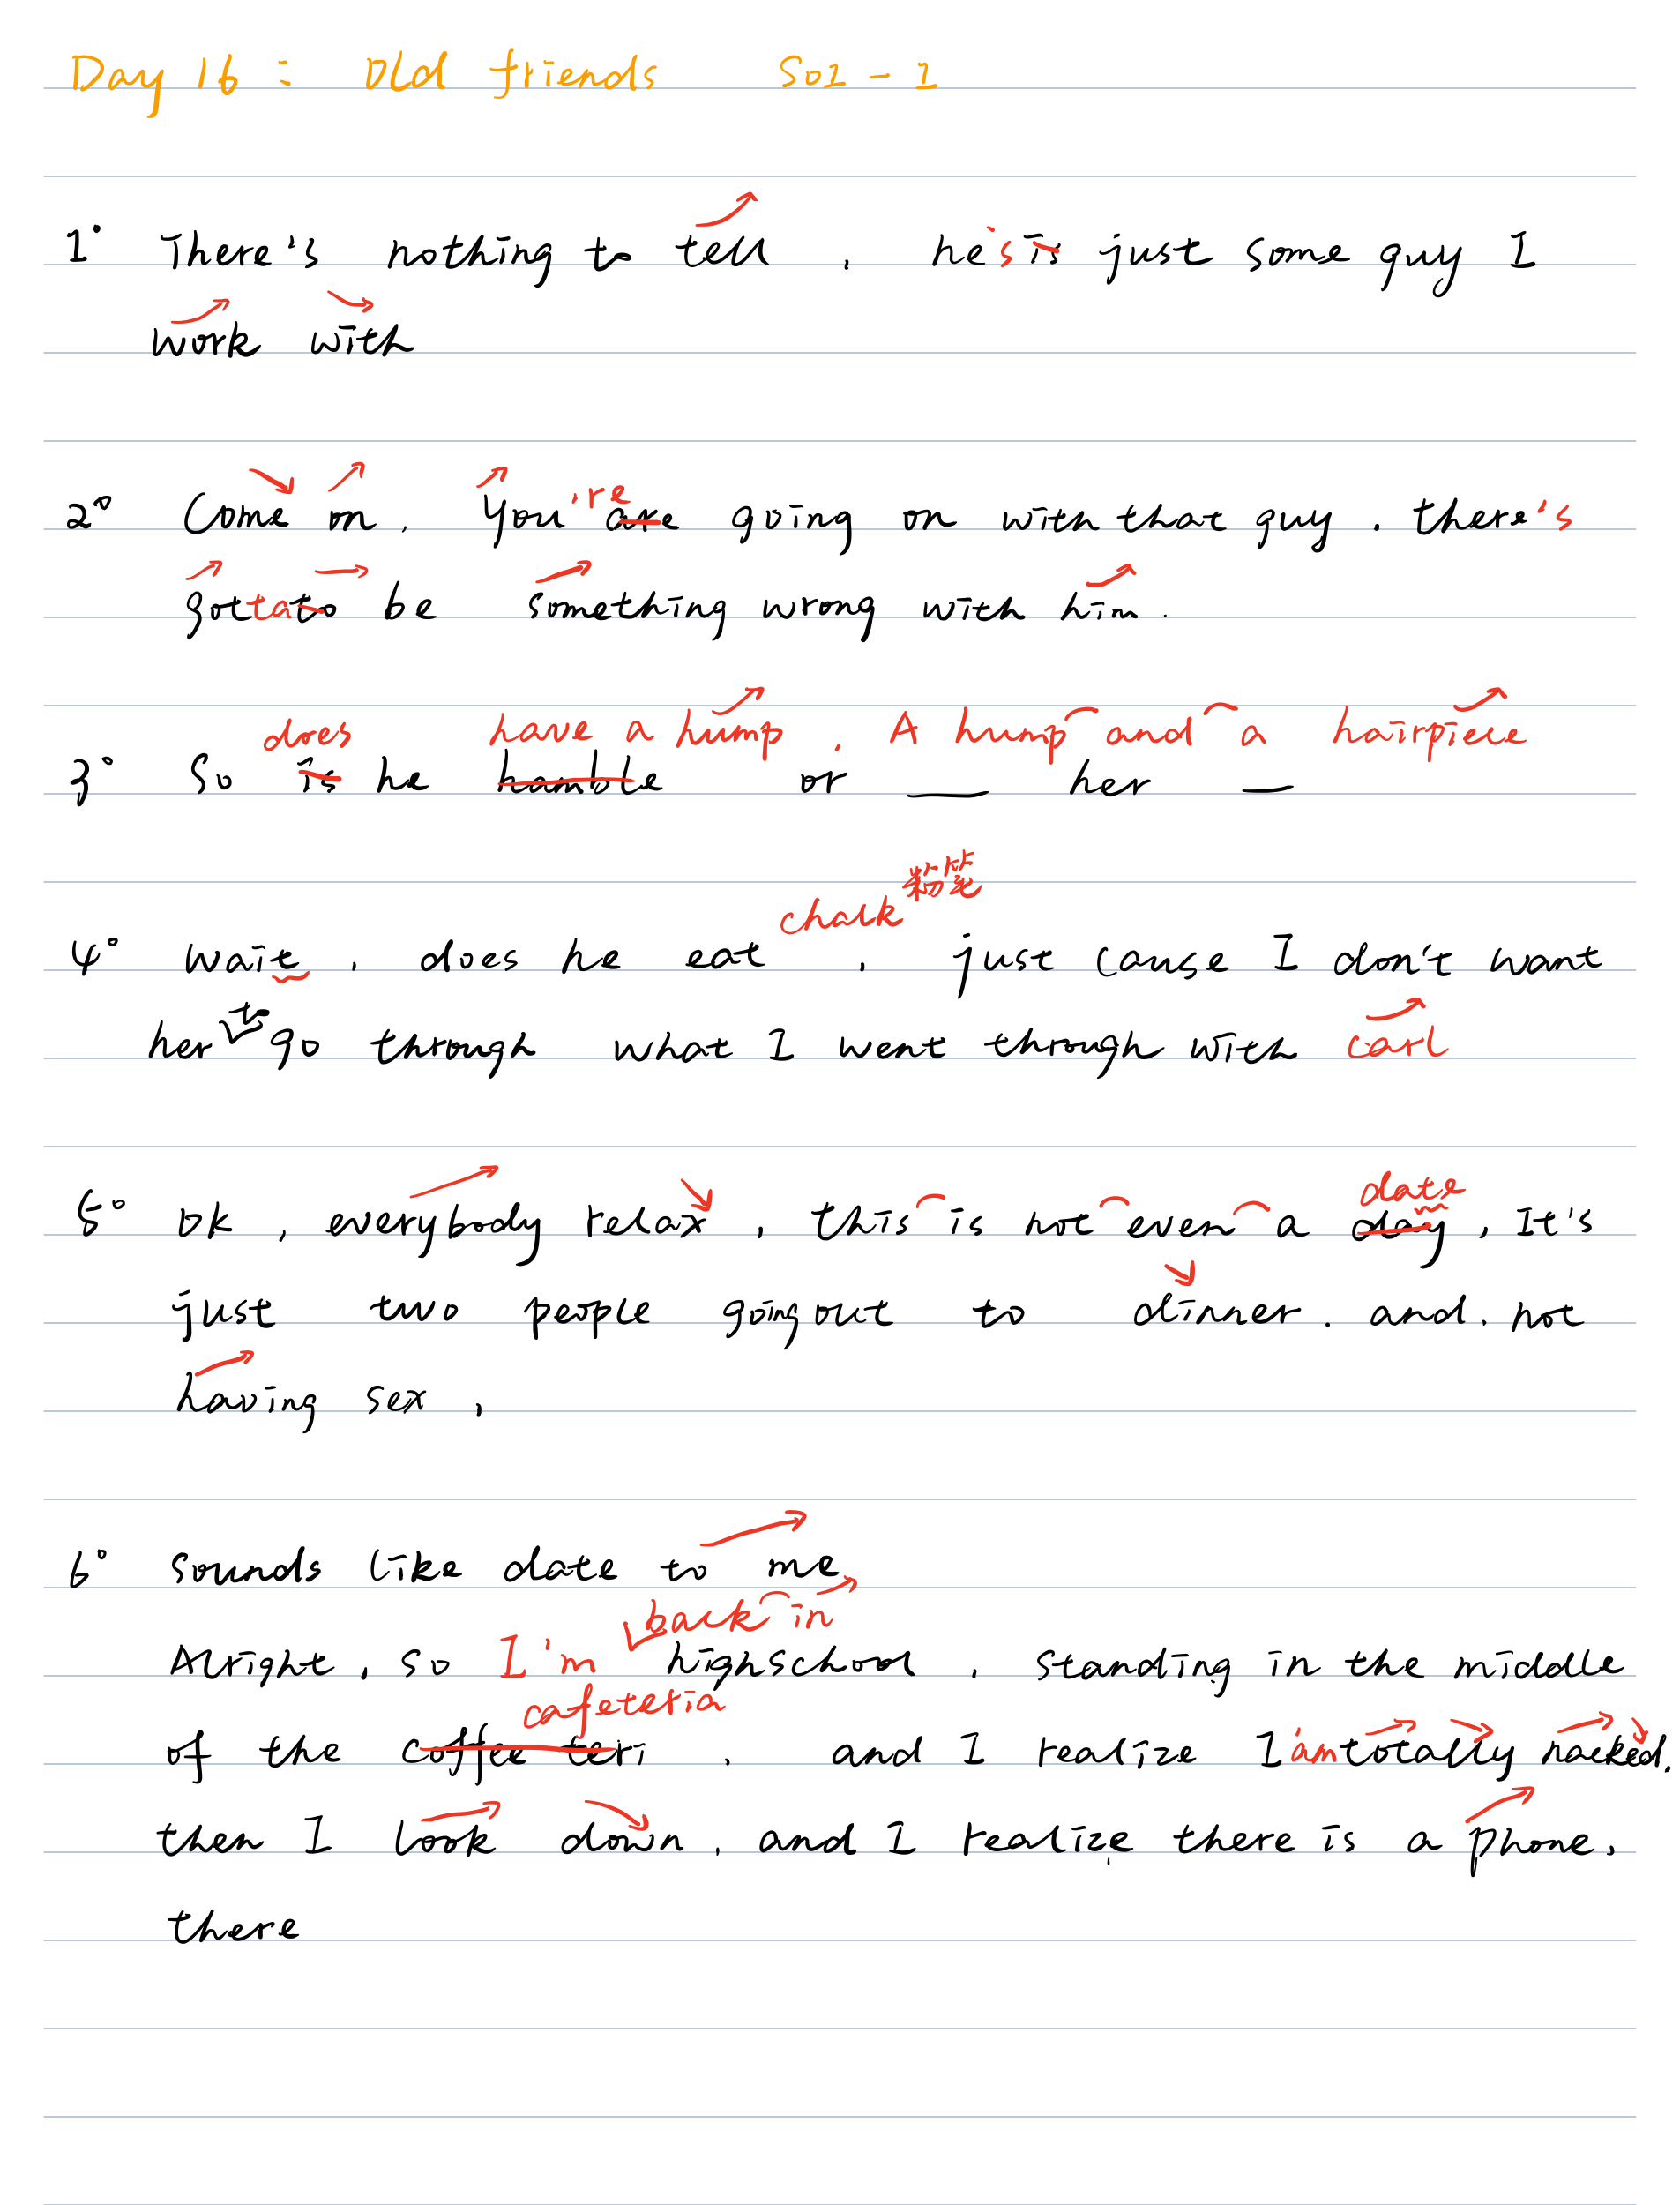 Day 16 : Old friends S01-1
1° There's nothing to tell , he's is just some guy I
work with
2° Come on , You're are going on with that guy . there's
gotta to be something wrong with him .
does have a hump , A hump and a hairpiece
3° So is he hamble or __ her __
chalk 粉笔
4° wait , does he eat , just cause I don't want
her to go through what I went through with carl
date
5° ok , everybody relax , this is not even a day , It's
just two people going out to dinner . and . not
having sex ,
6° Sounds like date to me ,
back in
Alright , so I'm highschool , standing in the middle
cafeteria
of the coffee teri , and I realize I'am totally nacked .
then I look down , and I realize there is a phone ,
there